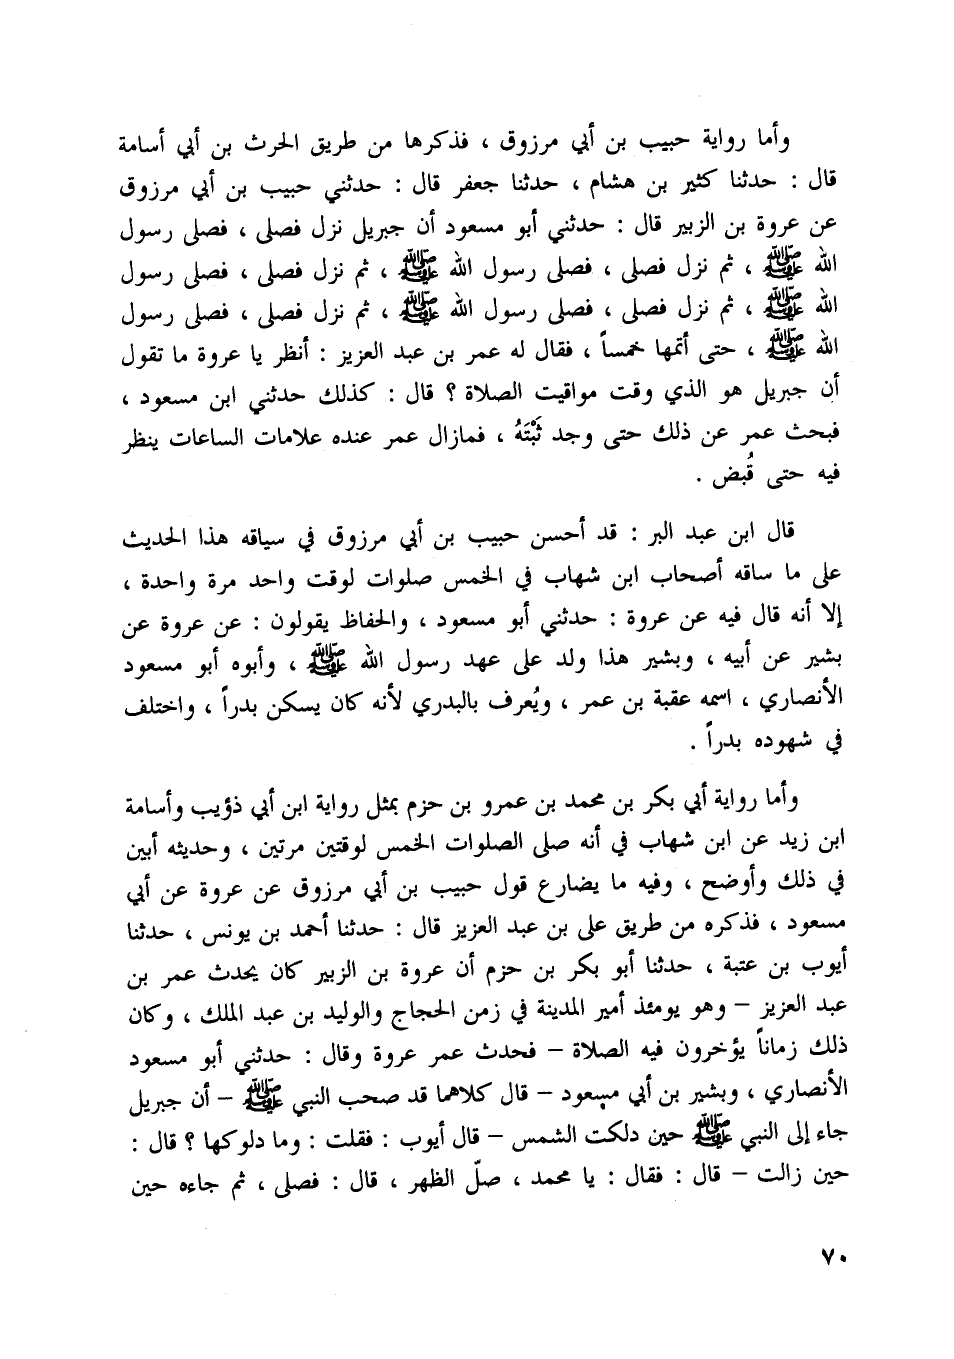 وأما رواية حبيب بن أبي مرزوق ، فذكرها من طريق الحرث بن أبي أسامة
قال : حدثنا كثير بن هشام ، حدثنا جعفر قال : حدثني حبيب بن أبي مرزوق
عن عروة بن الزبير قال : حدثني أبو مسعود أن جبريل نزل فصلى ، فصلى رسول
الله ﷺ ، ثم نزل فصلى ، فصلى رسول الله ﷺ ، ثم نزل فصلى ، فصلى رسول
الله ﷺ ، ثم نزل فصلى ، فصلى رسول الله ﷺ ، ثم نزل فصلى ، فصلى رسول
الله ﷺ ، حتى أتمها خمساً ، فقال له عمر بن عبد العزيز : أنظر يا عروة ما تقول
أن جبريل هو الذي وقت مواقيت الصلاة ؟ قال : كذلك حدثني ابن مسعود ،
فبحث عمر عن ذلك حتى وجد ثَبْتَهُ ، فمازال عمر عنده علامات الساعات ينظر
فيه حتى قُبض .
قال ابن عبد البر : قد أحسن حبيب بن أبي مرزوق في سياقه هذا الحديث
على ما ساقه أصحاب ابن شهاب في الخمس صلوات لوقت واحد مرة واحدة ،
إلا أنه قال فيه عن عروة : حدثني أبو مسعود ، والحفاظ يقولون : عن عروة عن
بشير عن أبيه ، وبشير هذا ولد على عهد رسول الله ﷺ ، وأبوه أبو مسعود
الأنصاري ، اسمه عقبة بن عمر ، ويُعرف بالبدري لأنه كان يسكن بدراً ، واختلف
في شهوده بدراً .
وأما رواية أبي بكر بن محمد بن عمرو بن حزم بمثل رواية ابن أبي ذؤيب وأسامة
ابن زيد عن ابن شهاب في أنه صلى الصلوات الخمس لوقتين مرتين ، وحديثه أبين
في ذلك وأوضح ، وفيه ما يضارع قول حبيب بن أبي مرزوق عن عروة عن أبي
مسعود ، فذكره من طريق على بن عبد العزيز قال : حدثنا أحمد بن يونس ، حدثنا
أيوب بن عتبة ، حدثنا أبو بكر بن حزم أن عروة بن الزبير كان يحدث عمر بن
عبد العزيز – وهو يومئذ أمير المدينة في زمن الحجاج والوليد بن عبد الملك ، وكان
ذلك زماناً يؤخرون فيه الصلاة – فحدث عمر عروة وقال : حدثني أبو مسعود
الأنصاري ، وبشير بن أبي مسعود – قال كلاهما قد صحب النبي ﷺ – أن جبريل
جاء إلى النبي ﷺ حين دلكت الشمس – قال أيوب : فقلت : وما دلوكها ؟ قال :
حين زالت – قال : فقال : يا محمد ، صلّ الظهر ، قال : فصلى ، ثم جاءه حين
٧٠